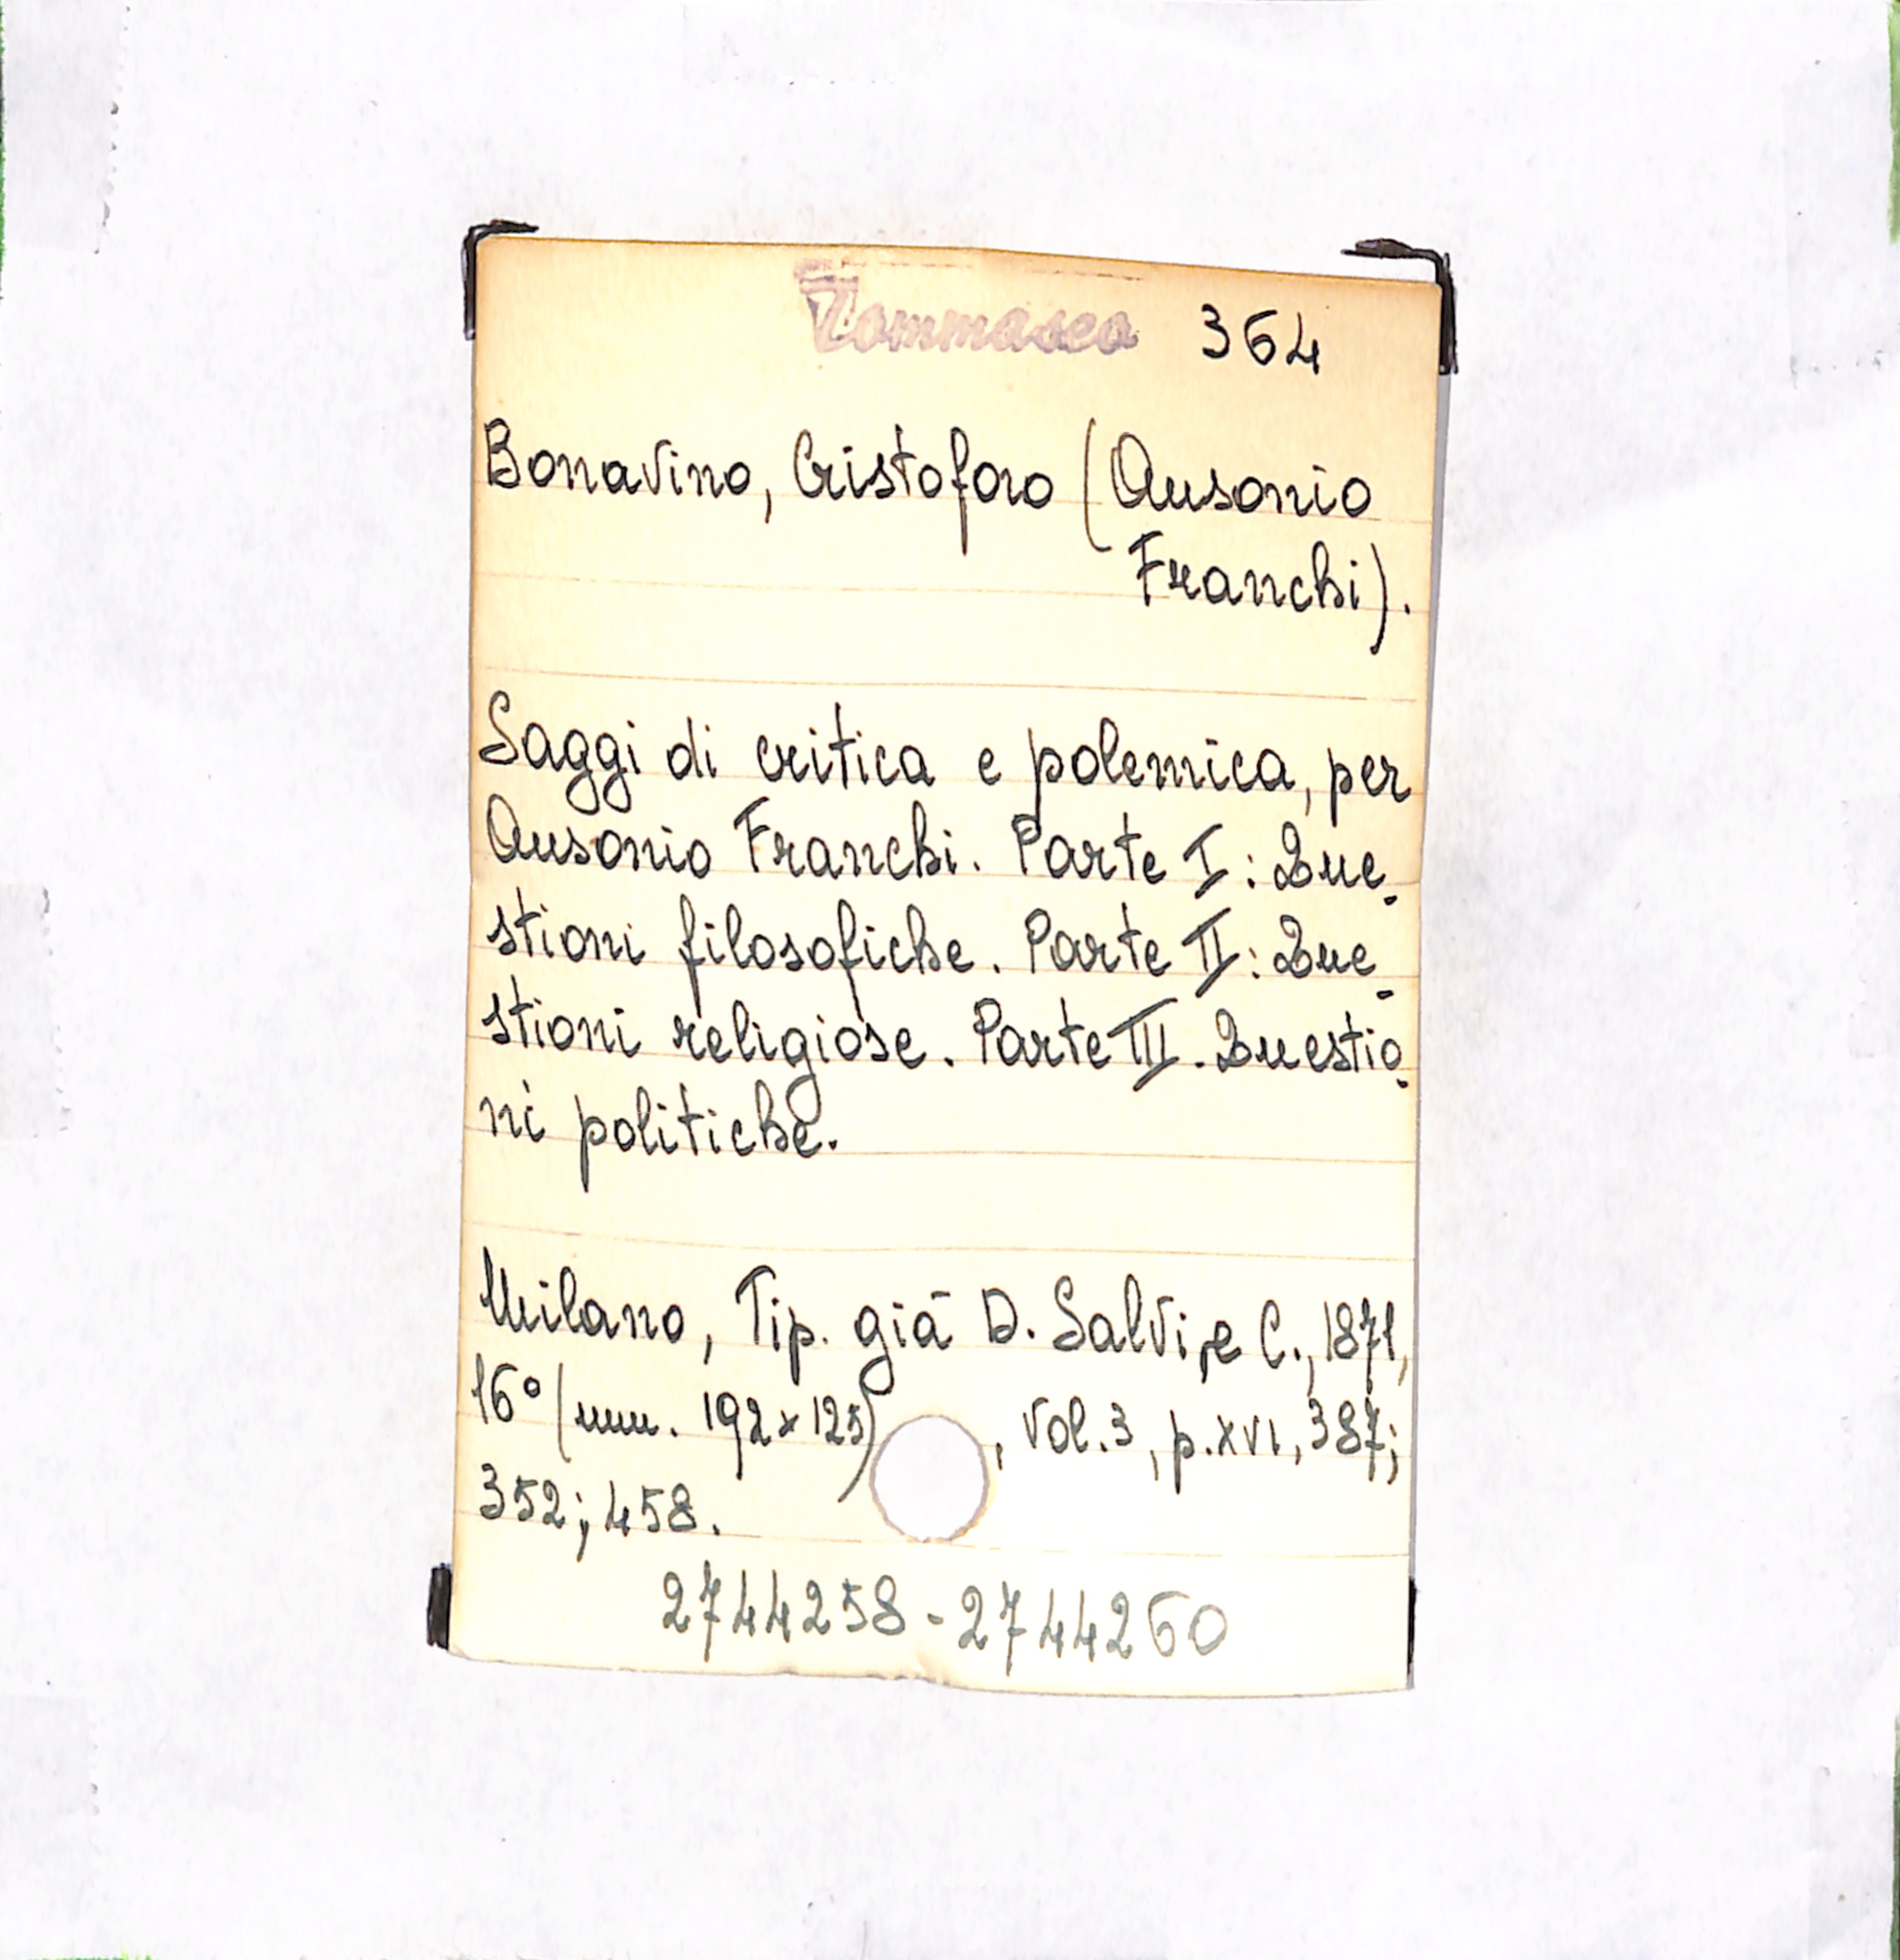 Tommaseo 364
Bonavino, Cristoforo (Ausonio
Franchi).
Saggi di critica e polemica, per
Ausonio Franchi. Parte I: Que-
stioni filosofiche. Parte II: Que-
stioni religiose. Parte III. Questio-
ni politiche.
Milano, Tip. già D. Salvi, e C., 1871,
16° (mm. 192x125) , vol. 3, p. XVI, 387;
352; 458.
2744258-2744260